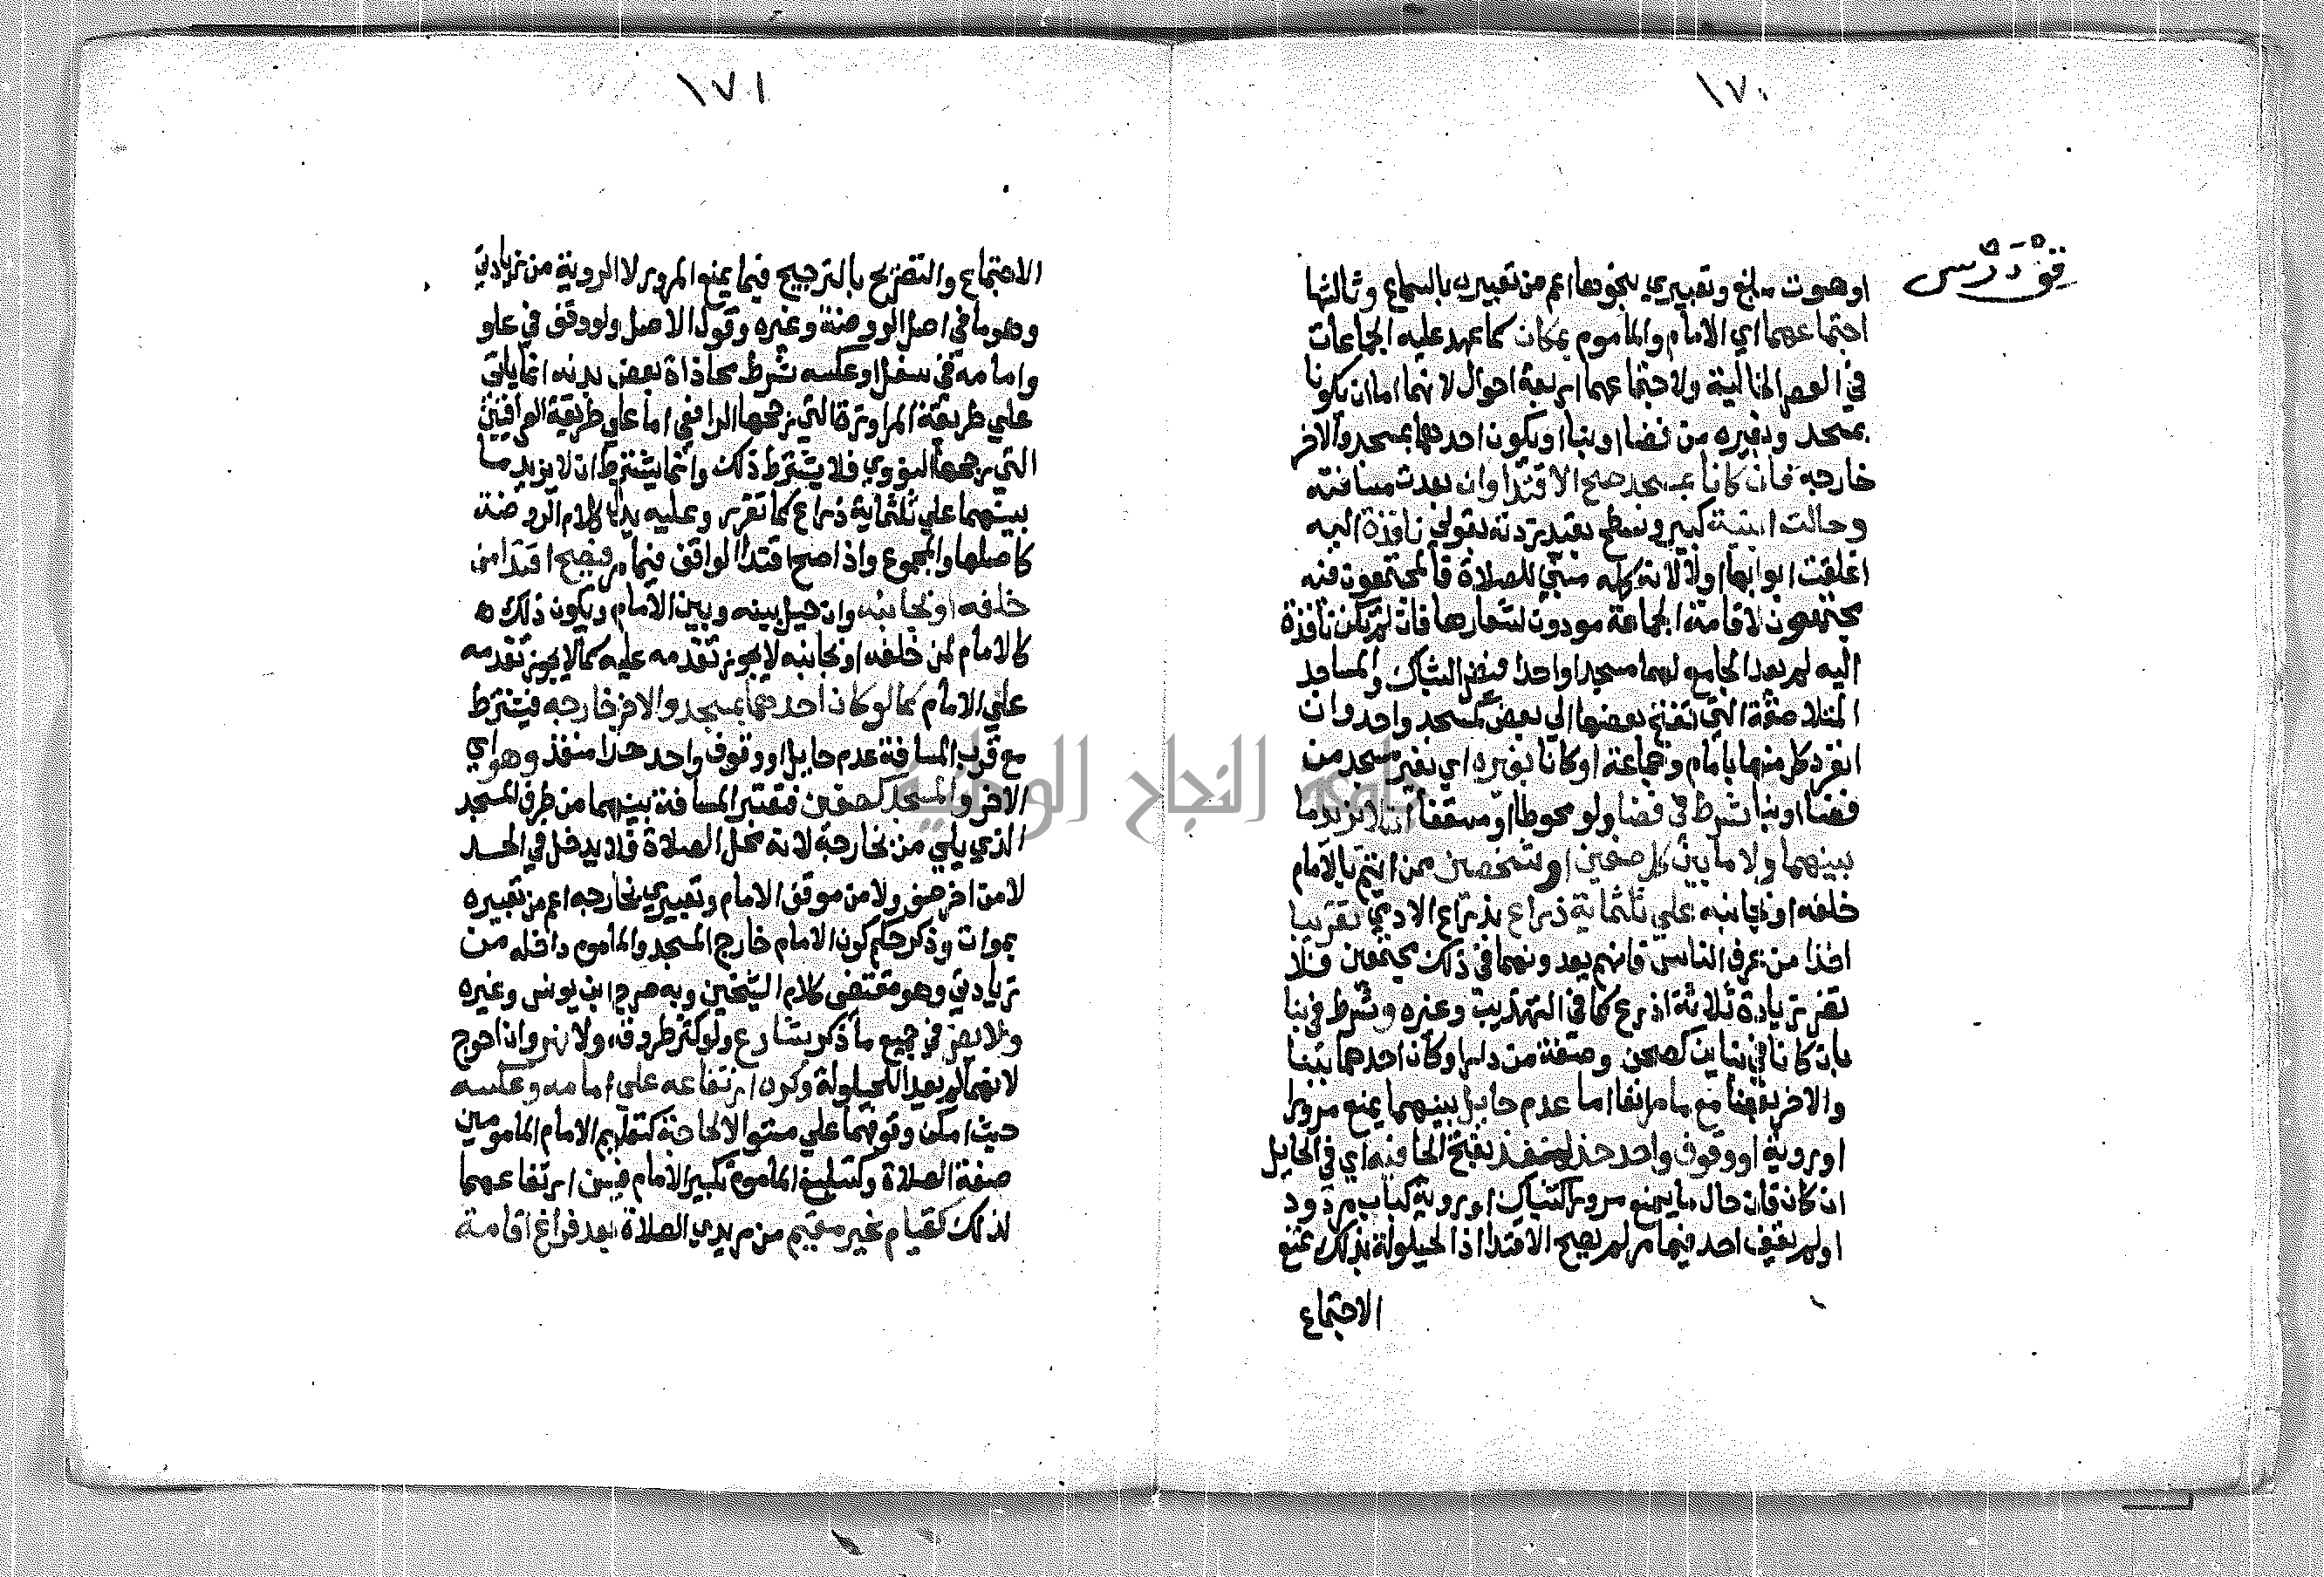 ١٧٠
او صوت مبلغ وتعبيري بنحوها اعم من تعبيره بالسماع وثالثها
اجتماعهما اي الامام والماموم بمكان كما عهد عليه الجماعات
في العصر الخالية ولاجتماعهما اربعة احوال لانهما اما ان يكونا
بمسجد وبغيره من فضا او بنا او يكون احدهما بمسجد والاخر
خارجه فان كانا بمسجد صح الاقتدا وان بعدت مسافته
وحالت ابنية كبير وسطح بقيد زدته بقولي نافذة اليه
اغلقت ابوابها اولا لانه كله مبني للصلاة فالمجتمعون فيه
مجتمعون لاقامة الجماعة مودون لشعارها فان لم تكن نافذة
اليه لم يعد الجامع لهما مسجدا واحدا فيضر الشباك والمساجد
المتلاصقة التي تفتح بعضها الي بعض كمسجد واحد وان
انفرد كل منها بامام وجماعة او كانا بغيره اي بغير مسجد من
فضا او بنا شرط في فضا ولو محوطا او مسقفا ان لا يزيد ما
بينهما ولا ما بين كل صفين او شخصين ممن ائتم بالامام
خلفه او بجانبه علي ثلثماية ذراع بذراع الادمي تقريبا
اخذا من عرف الناس فانهم يعدونهما في ذلك مجتمعين فلا
تضر زيادة ثلاثة اذرع كما في التهذيب وغيره وشرط في بنا
بان كانا في بناين كصحن وصفة من دار او كان احدهما ببنا
والاخر بفضا مع ما مر انفا اما عدم حايل بينهما يمنع مرورا
او روية او وقوف واحد حذا منفذ بفتح الفا فيه اي في الحايل
ان كان فان حال ما يمنع مرورا كشباك او روية كباب مردود
او لم يقف احد فيما مر لم يصح الاقتدا اذ الحيلولة بذلك تمنع
الاجتماع
١٧١
الاجتماع والتصريح بالترجيح فيما يمنع المرور لا الروية من زيادتي
وهو ما في اصل الروضة وغيره وقول الاصل ولو وقف في علو
وامامه في سفل او عكسه شرط محاذاة بعض بدنه انما ياتي
علي طريقة المراوزة التي رجحها الرافعي اما علي طريقة العراقيين
التي رجحها النووي فلا يشترط ذلك وانما يشترط ان لا يزيد ما
بينهما علي ثلثماية ذراع كما تقرر وعليه يدل كلام الروضة
كاصلها والمجموع واذا صح اقتدا الواقف فيما مر فيصح اقتدا من
خلفه او بجانبه وان حيل بينه وبين الامام ويكون ذلك
كالامام لمن خلفه او بجانبه لا يجوز تقدمه عليه كما لا يجوز تقدمه
علي الامام كما لو كان احدهما بمسجد والاخر خارجه فيشترط
مع قرب المسافة عدم حايل او وقوف واحد حذا منفذ وهو اي
الاخر والمسجد كصفين فتعتبر المسافة بينهما من طرف المسجد
الذي يلي من بخارجه لانه محل الصلاة فلا يدخل في الحد
لا من اخر صف ولا من موقف الامام وتعبيري بخارجه اعم من تعبيره
بموات وذكر حكم كون الامام خارج المسجد والماموم داخله من
زيادتي وهو مقتضى كلام الشيخين وبه صرح ابن يونس وغيره
ولا يضر في جميع ما ذكر شارع ولو كثر طروقه ولا نهر وان احوج
لانهما لم يعدا للحيلولة وكره ارتفاعه علي امامه وعكسه
حيث امكن وقوفهما علي مستو الا لحاجة كتعليم الامام المامومين
صفة الصلاة وكتبليغ الماموم تكبير الامام فيسن ارتفاعهما
لذلك كقيام غير مقيم من مريدي الصلاة بعد فراغ اقامة
جامعة النجاح الوطنية